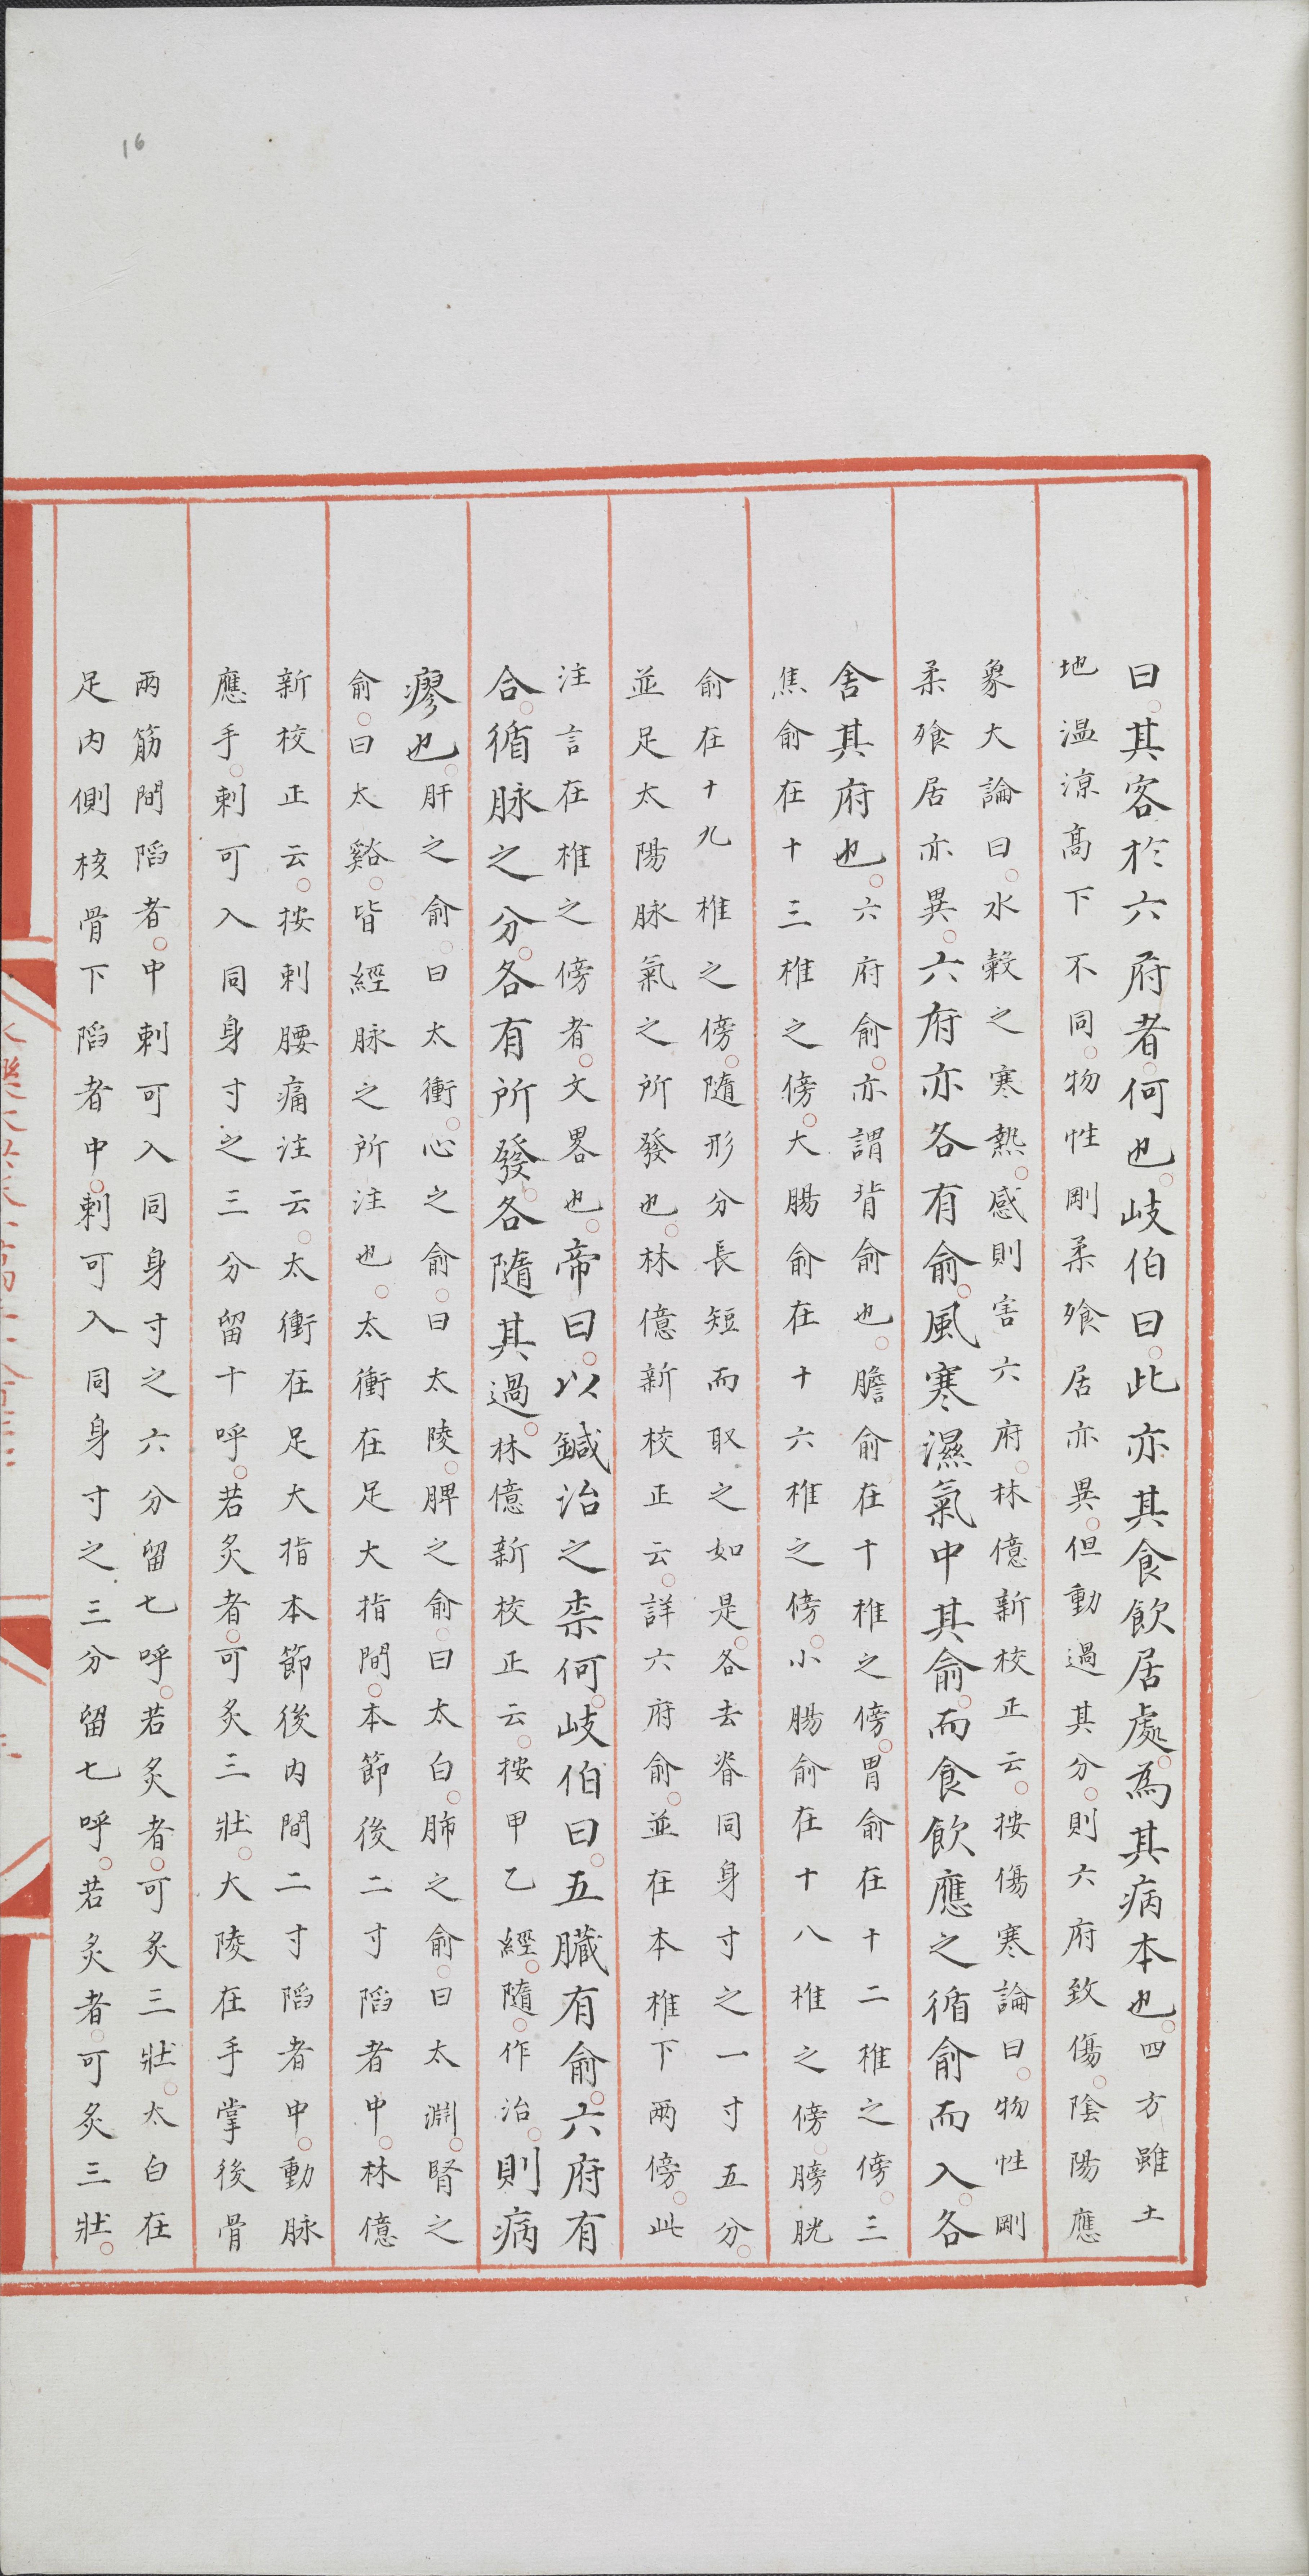 16
曰其客於六府者何也岐伯曰此亦其食飲居處為其病本也四方雖土
地温涼高下不同物性剛柔飱居亦異但動過其分則六府致傷陰陽應
象大論曰水穀之寒熱感則害六府林億新校正云按傷寒論曰物性剛
柔飱居亦異六府亦各有俞風寒濕氣中其俞而食飲應之循俞而入各
舍其府也六府俞亦謂背俞也膽俞在十椎之傍胃俞在十二椎之傍三
焦俞在十三椎之傍大腸俞在十六椎之傍小腸俞在十八椎之傍膀胱
俞在十九椎之傍隨形分長短而取之如是各去脊同身寸之一寸五分
並足太陽脉氣之所發也林億新校正云詳六府俞並在本椎下兩傍此
注言在椎之傍者文畧也帝曰以鍼治之柰何岐伯曰五臟有俞六府有
合循脉之分各有所發各隨其過林億新校正云按甲乙經隨作治則病
瘳也肝之俞曰太衝心之俞曰太陵脾之俞曰太白肺之俞曰太淵腎之
俞曰太谿皆經脉之所注也太衝在足大指間本節後二寸陷者中林億
新校正云按刺腰痛注云太衝在足大指本節後内間二寸陷者中動脉
應手刺可入同身寸之三分留十呼若炙者可炙三壯大陵在手掌後骨
兩筋間陷者中刺可入同身寸之六分留七呼若炙者可炙三壯太白在
足内側核骨下陷者中刺可入同身寸之三分留七呼若炙者可炙三壯